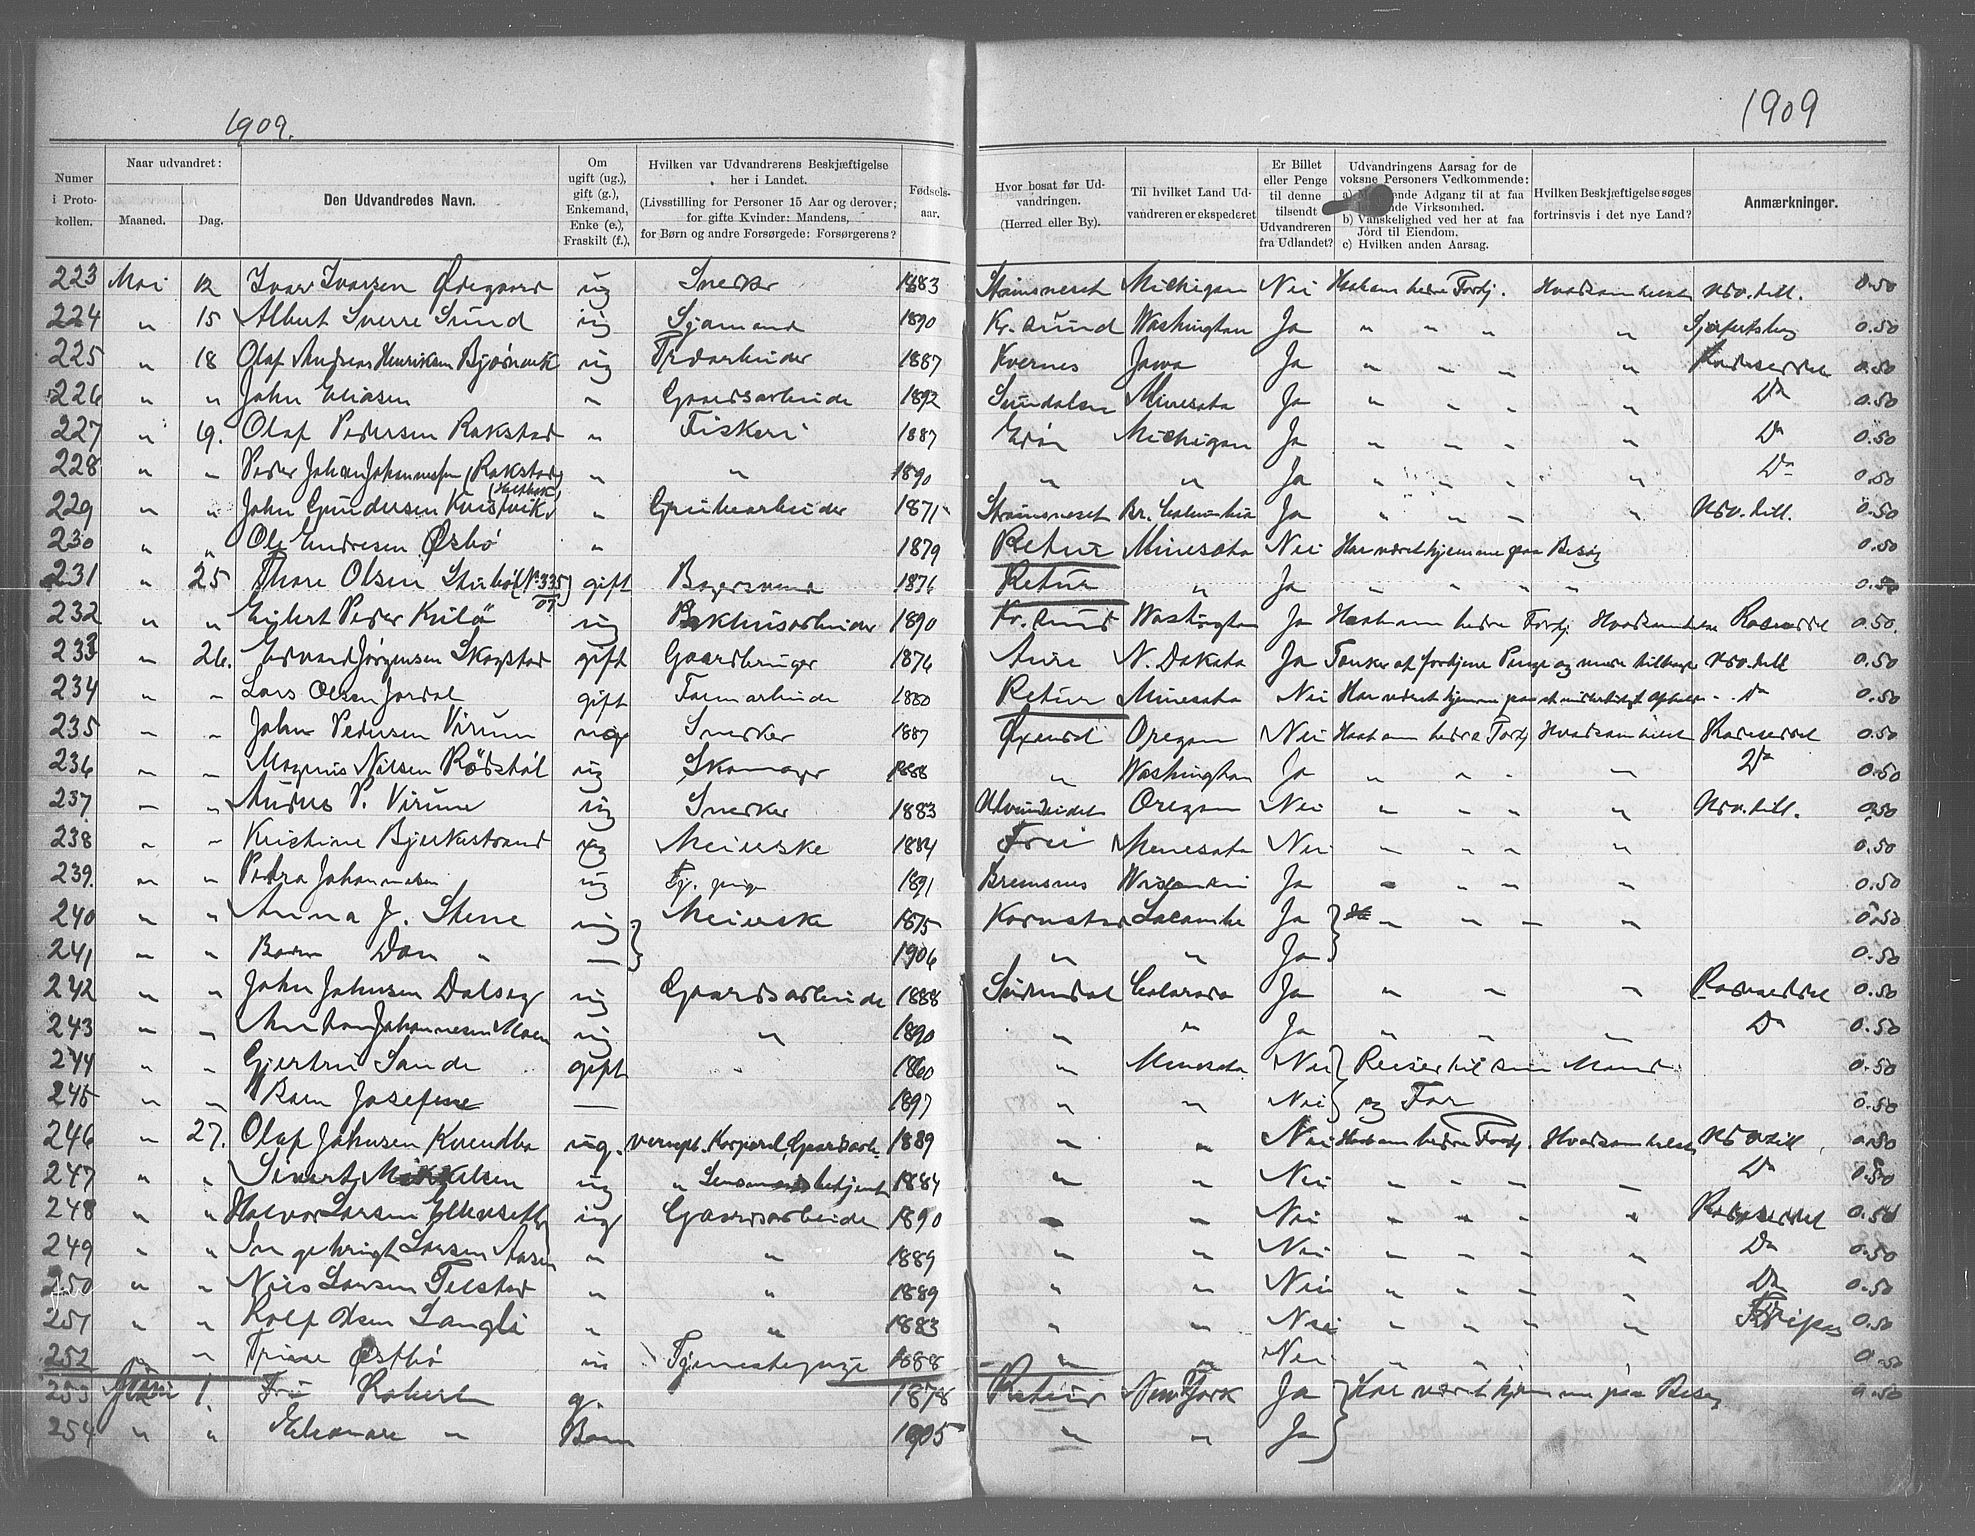 1909.
1909
Numer i Protokollen.
Naar udvandret:
Maaned.
Dag.
Den Udvandredes Navn.
Om ugift (ug.), gift (g.), Enkemand, Enke (e.), Fraskilt (f.),
Hvilken var Udvandrerens Beskjæftigelse her i Landet. (Livsstilling for Personer 15 Aar og derover; for gifte Kvinder: Mandens, for Børn og andre Forsørgede: Forsørgerens?
Fødselsaar.
Hvor bosat før Udvandringen. (Herred eller By).
Til hvilket Land Udvandreren er ekspederet
Er Billet eller Penge til denne tilsendt Udvandreren fra Udlandet?
Udvandringens Aarsag for de voksne Personers Vedkommende: a) ende Adgang til at faa nde Virksomhed. b) Vanskelighed ved her at faa Jord til Eiendom. c) Hvilken anden Aarsag.
Hvilken Beskjæftigelse søges fortrinsvis i det nye Land?
Anmærkninger.
223 Mai 12 Ivar Ivarsen Ødegaard ug Snedker 1883 Strømsneset Michigan Nei Haab om bedre Fortj. Hvadsomhelst Udv. till. 0.50
224 " 15 Albert Sverre Sund ug Sjømand 1890 Kr.sund Washington Ja " " " " 0.50
225 " 18 Olaf Andreas Henriksen Bjøsnevik ug 1887 Kvernes Jowa Ja " " " " Rulleseddel 0.50
226 " " John Eliasen " Gaardsarbeide 1892 Sundalen Minesota Ja " " " " Do 0.50
227 " 19. Olaf Pedersen Rokstad " Fiskeri 1887 Edøn Michigan Ja " " " " Do 0.50
228 " " Peder Johan Johannessen (Rokstad) " " 1890 " " Ja " " " " Do 0.50
229 " " John Gundersen Kvistvik " Grubearbeider 1871 Strømsneset Br. Columbia Ja " " " " Udv. till. 0.50
230 " " Ole Endresen Østbø " 1879 Retur Minesota Nei Har været hjemme paa Besøg 0.50
231 " 25 Thore Olsen (No 335/07) gift Bagersvend 1876 Retur " Ja " " " " 0.50
232 " " Eilert Peder Kulø ug Pakhusarbeider 1890 Kr.sund Washington Ja Haab om bedre Fortj. Hvadsomhelst Rulleseddel 0.50
233 " 26. Edvard Jørgensen Skogstad gift Gaardbruger 1876 Aure N. Dakota Ja Tænker at fortjene Penge og reise tilbage Udv. till 0.50
234 " " Lars Olsen Jordal gift Farmarbeide 1880 Retur Minesota Nei Har været hjemme paa et midlertidigt Ophold - Do 0.50
235 " " John Pedersen Virum ug Snedker 1887 Øxendal Oregon Nei Haab om bedre Fortj Hvadsomhelst Rulleseddel 0.50
236 " " Magnus Nilsen Rødstøl ug Skomager 1888 " Washington Ja " " " " Do 0.50
237 " " Anders P. Virum ug Snedker 1883 Ulvundeidet Oregon Nei " " " " Udv. till. 0.50
238 " " Kristine Bjerkestrand ug Meierske 1884 Frei Minesota Nei " " " " 0.50
239. " " Petra Johannesen ug Tj. pige 1891 Bremsnes Wisconsin Ja " " " " 0.50
240 " " Anna J. Stene ug Meierske 1875 Kornstad Lacombe Ja " " " " 0.50
241 " " Barn Dan " — 1906 " " Ja 0.50
242 " " John Johnsen Dalseg ug Gaardsarbeide 1888 Sundal Colorado Ja " " " Rulleseddel 0.50
243 " " Anton Johannesen Moen ug " 1890 " " Ja " " " Do 0.50
244 " " Gjertru Sande gift " 1860 " Minesota Nei Reiser til sin Mand 0.50
245 " " Barn Josefine — 1897 " " Nei og Far 0.50
246 " 27. Olaf Johnsen Kvendbø ug. vernepl. Korporal, Gaardsarb. 1889 " " Nei Haab om bedre Fortj. Hvadsomhelst Udv till 0.50
247 " " Sivert Mikkelsen ug " Lensmandsbetjent 1884 " " Nei " " " " Do 0.50
248 " " Halvor Larsen ug Gaardsarbeide 1890 " " Nei " " " " Rulleseddel 0.50
249 " " Ingebrigt Larsen Aasen " " 1889 " " Nei " " " " Do 0.50
250 " " Nils Larsen Telstad " " 1889 " " Nei " " " " Do 0.50
251 " " Rolf Olsen Langli " " 1883 " " Nei " " " " Fripas 0.50
252 " " Trine Østbø " Tjenestepige 1888 " " Nei " " " 0.50
253 Juni 1. Fru Robert g. 1878 Retur New York Ja Har været hjemme paa Besøg 0.50
254 " " Eleonore " Barn 1905 " " Ja